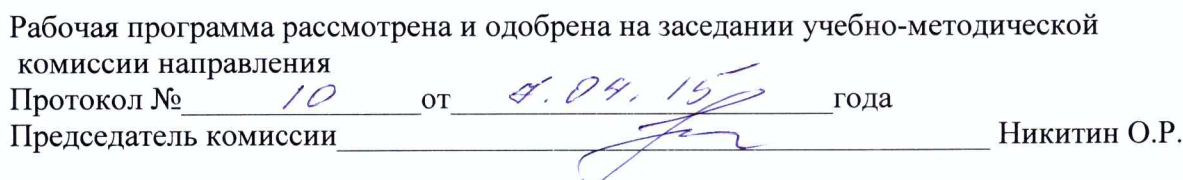 Рабочая программа рассмотрена и одобрена на заседании учебно-методической
комиссии направления
Протокол № 10 от 7.04.15 года
Председатель комиссии Никитин О.Р.